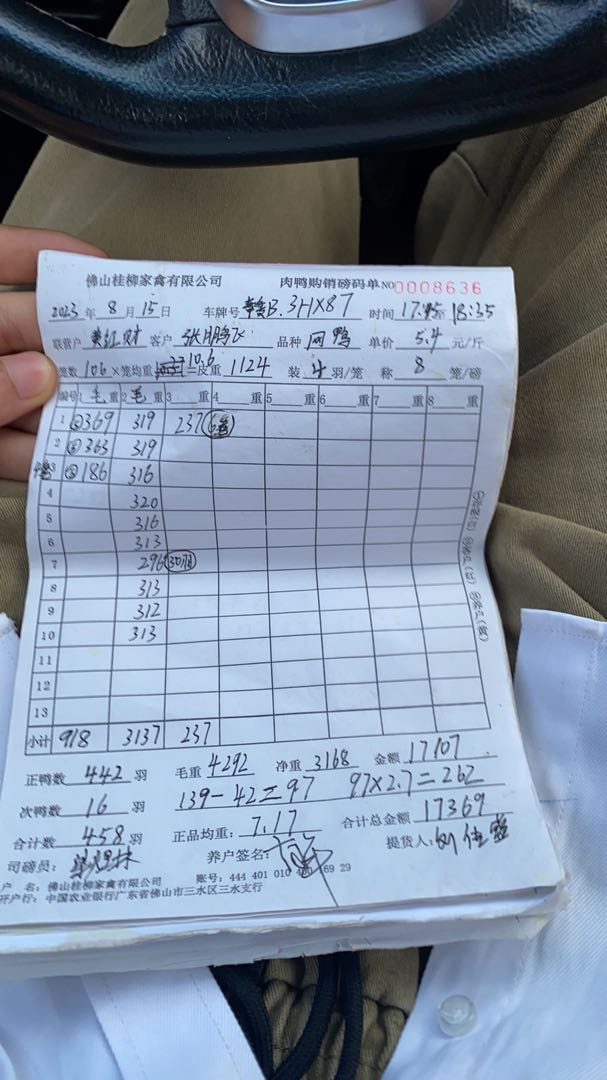 佛山桂柳家禽有限公司 肉鸭购销磅码单 NO 0008636
2023年 8月 15日 车牌号 B.3HX87 时间 17:45至18:35
联营户 黄江财 客户 张鹏飞 品种 网鸭 单价 5.4 元/斤
笼数 106 ×笼均重 10.6 =皮重 1124 装 4 羽/笼 称 8 笼/磅
编号 1 毛 重 2 毛 重 3 重 4 重 5 重 6 重 7 重 8 重
1 ②369 319 237 6笼
2 ②363 319
3 ②186 316
4 320
5 316
6 313
7 296 30羽
8 313
9 312
10 313
11
12
13
小计 918 3137 237
①存根(白) ②客户(红) ③养户(黄)
正鸭数 442 羽 毛重 4292 净重 3168 金额 17107
次鸭数 16 羽 139-42=97 97×2.7=262
合计数 458 羽 正品均重: 7.17 合计总金额 17369
司磅员: 养户签名: 提货人:
户 名: 佛山桂柳家禽有限公司 账号: 444 401 010 69 29
开户行: 中国农业银行广东省佛山市三水区三水支行